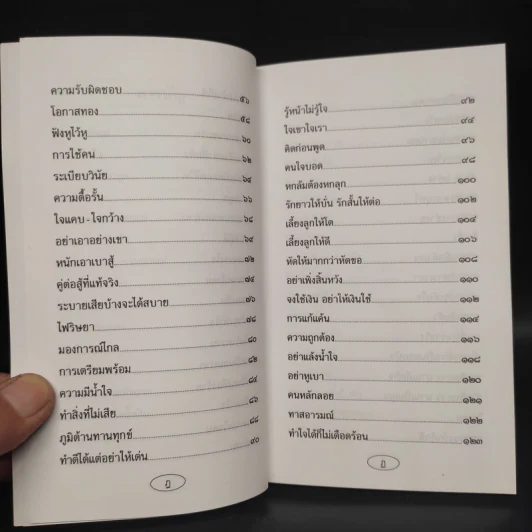 ความรับผิดชอบ ๕๖
โอกาสทอง ๕๘
ฟังหูไว้หู ๖๐
การใช้คน ๖๒
ระเบียบวินัย ๖๔
ความดื้อรั้น ๖๖
ใจแคบ - ใจกว้าง ๖๘
อย่าเอาอย่างเขา ๖๙
หนักเอาเบาสู้ ๗๒
คู่ต่อสู้ที่แท้จริง ๗๔
ระบายเสียบ้างจะได้สบาย ๗๖
ไฟริษยา ๗๘
มองการณ์ไกล ๘๐
การเตรียมพร้อม ๘๒
ความมีน้ำใจ ๘๔
ทำสิ่งที่ไม่เสีย ๘๖
ภูมิต้านทานทุกข์ ๘๘
ทำดีได้แต่อย่าให้เด่น ๙๐
รู้หน้าไม่รู้ใจ ๙๒
ใจเขาใจเรา ๙๔
คิดก่อนพูด ๙๖
คนใจบอด ๙๘
หกล้มต้องหกลุก ๑๐๐
รักยาวให้บั่น รักสั้นให้ต่อ ๑๐๒
เลี้ยงลูกให้โต ๑๐๔
เลี้ยงลูกให้ดี ๑๐๖
หัดให้มากกว่าหัดขอ ๑๐๘
อย่าเพิ่งสิ้นหวัง ๑๑๐
จงใช้เงิน อย่าให้เงินใช้ ๑๑๒
การแก้แค้น ๑๑๔
ความถูกต้อง ๑๑๖
อย่าแล้งน้ำใจ ๑๑๘
อย่าหูเบา ๑๒๐
คนหลักลอย ๑๒๑
ทาสอารมณ์ ๑๒๒
ทำใจได้ก็ไม่เดือดร้อน ๑๒๓